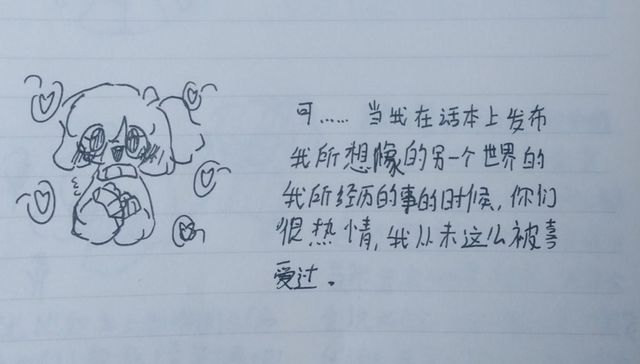 可……当我在话本上发布
我所想像的另一个世界的
我所经历的事的时候，你们
很热情，我从未这么被喜
爱过。